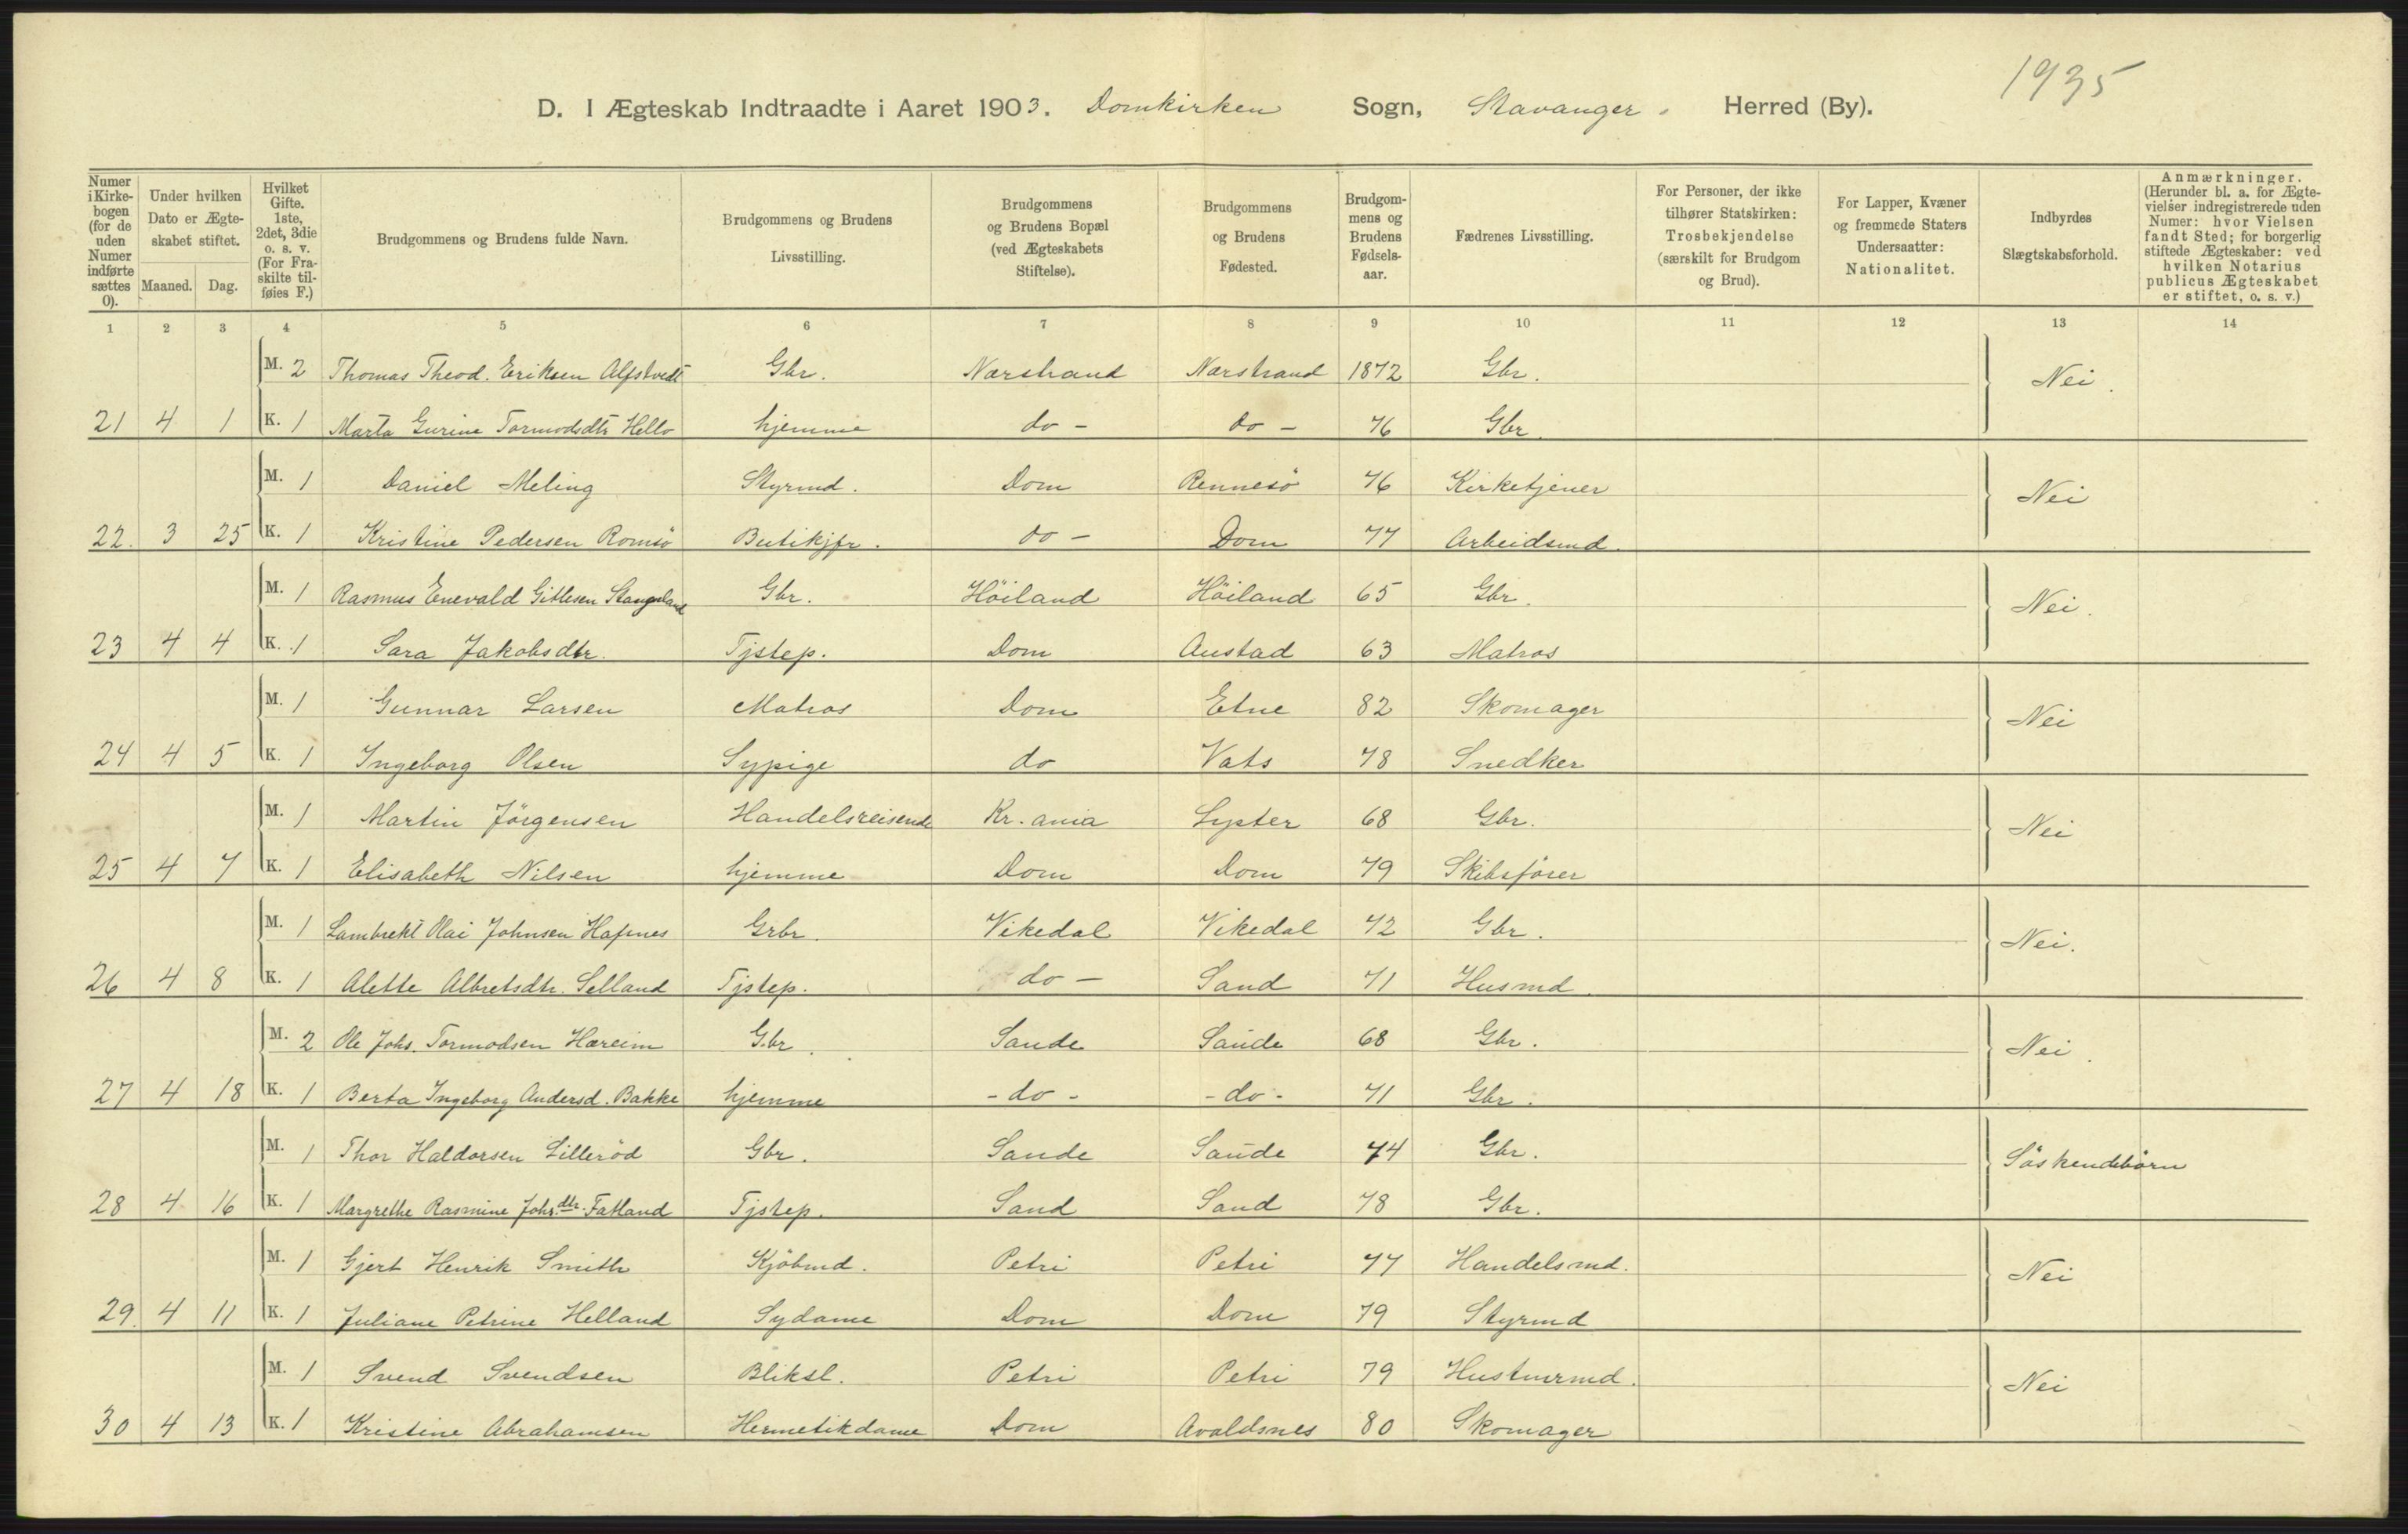 1935
D. I Ægteskab Indtraadte i Aaret 1903. Domkirken Sogn, Stavanger. Herred (By).
Numer i Kirkebogen (for de uden Numer indførte sættes 0).
Under hvilken Dato er Ægteskabet stiftet. Maaned. Dag.
Hvilket Gifte. 1ste, 2det, 3die o. s. v. (For Fraskilte tilføies F.)
Brudgommens og Brudens fulde Navn.
Brudgommens og Brudens Livsstilling.
Brudgommens og Brudens Bopæl (ved Ægteskabets Stiftelse).
Brudgommens og Brudens Fødested.
Brudgommens og Brudens Fødselsaar.
Fædrenes Livsstilling.
For Personer, der ikke tilhører Statskirken: Trosbekjendelse (særskilt for Brudgom og Brud).
For Lapper, Kvæner og fremmede Staters Undersaatter: Nationalitet.
Indbyrdes Slægtskabsforhold.
Anmærkninger. (Herunder bl. a. for Ægtevielser indregistrerede uden Numer: hvor Vielsen fandt Sted; for borgerlig stiftede Ægteskaber: ved hvilken Notarius publicus Ægteskabet er stiftet, o. s. v.)
1 2 3 4 5 6 7 8 9 10 11 12 13 14
M. 2 Thomas Theod. Eriksen Alfstvedt Gbr. Nærstrand Nærstrand 1872 Gbr. Nei.
21 4 1 K. 1 Marta Gurine Tormodsdtr Hello hjemme do - do - 76 Gbr.
M. 1 Daniel Meling Styrmd. Dom Rennesö 76 Kirketjener Nei
22. 3 25 K. 1 Kristine Pedersen Romsö Butikjfr. do - Dom 77 Arbeidsmd.
M. 1 Rasmus Enevald Gitlesen Stangeland Gbr. Höiland Höiland 65 Gbr. Nei.
23 4 4 K. 1 Sara Jakobsdtr. Tjstep. Dom Austad 63 Matros
M. 1 Gunnar Larsen Matros Dom Etne 82 Skomager Nei
24 4 5 K. 1 Ingeborg Olsen Sypige do Vats 78 Snedker
M. 1 Martin Jörgensen Handelsreisende Kr.ania Lyster 68 Gbr. Nei
25 4 7 K. 1 Elisabeth Nilsen hjemme Dom Dom 79 Skibsförer
M. 1 Lambrekt Olai Johnsen Hafnes Grbr. Vikedal Vikedal 72 Gbr. Nei.
26 4 8 K. 1 Alette Albretsdtr. Selland Tjstep. do - Sand 71 Husmd.
M. 2 Ole Johs. Tormodsen Hareim Gbr. Saude Saude 68 Gbr. Nei.
27 4 18 K. 1 Berta Ingeborg Andersd. Bakke hjemme - do - - do - 71 Gbr.
M. 1 Thor Haldorsen Lilleröd Gbr. Saude Saude 74 Gbr. Söskendebörn
28 4 16 K. 1 Margrethe Rasmine Johs.dtr. Fatland Tjstep. Sand Sand 78 Gbr.
M. 1 Gjert Henrik Smith Kjöbmd. Petri Petri 77 Handelsmd. Nei
29. 4 11 K. 1 Juliane Petrine Helland Sydame Dom Dom 79 Styrmd
M. 1 Svend Svendsen Bliksl. Petri Petri 79 Hustmrmd. Nei
30 4 13 K. 1 Kristine Abrahamsen Hermetikdame Dom Avaldsnes 80 Skomager